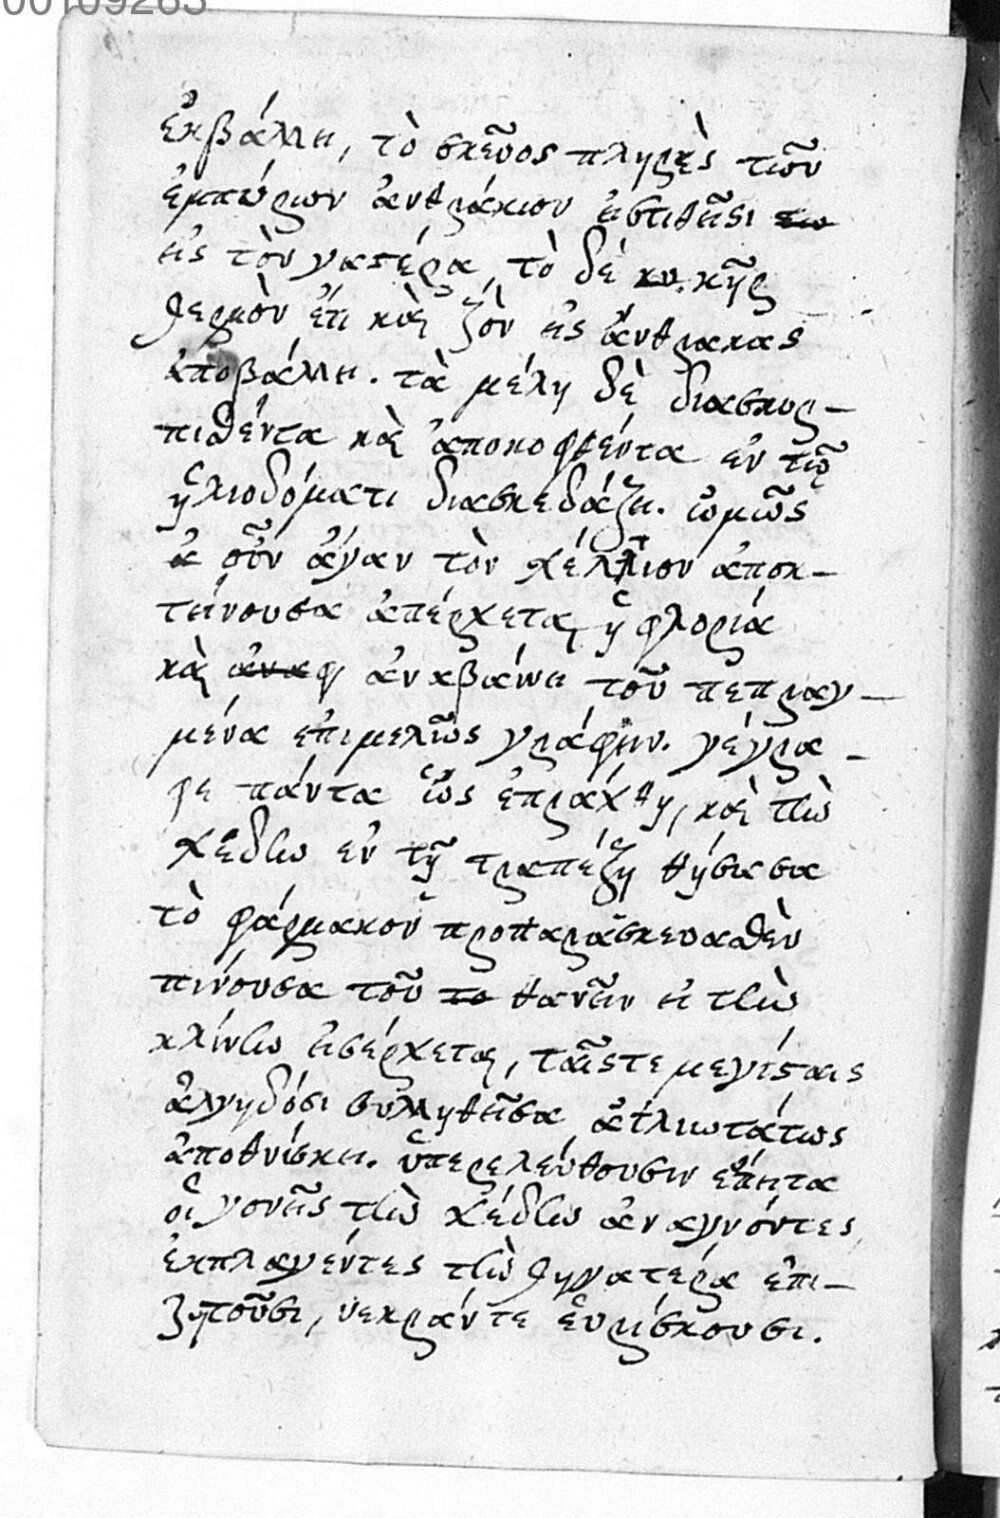 00109263
ἐκβάλλει, τὸ σκεῦος πληρὲς τῶν
ἐμπύριων ἀνθράκιον εἰστιθεῖσι τω
εἰς τὸν γαστέρα, τὸ δὲ κυ. κῆρ
θερμὸν ἔτι καὶ ζὸν εἰς ἄνθρακας
ἀποβάλλει. τὰ μέλη δὲ διασκορ-
πιθέντα καὶ ἀποκοφθέντα ἐν τῷ
ἡλιοδόματι διασκεδάζει. ὠμῶς
ἀ οὖν ἄγαν τὸν χέλλιον ἀποκ-
τείνουσα ἀπέρχεται ἡ φλοριά
καὶ ἀναφ ἀναβαίνει τοῦ πεπραγ-
μένα ἐπιμελῶς γράφειν. γέγρα-
φε πάντα ὡς ἐπράχθη, καὶ τὴν
χέδην ἐν τῇ τραπέζῃ θήσασα
τὸ φάρμακον προπαρασκευαθὲν
πινόυσα τοῦ το θανεῖν εἰ τὴν
κλίνην εἰσέρχεται, ταῖς τε μεγίσταις
ἀλγηδόσι συλληθεῖσα ἀθλιωτάτως
ἀποθνίσκει. ὑπερελεύθουσιν ἔπειτα
οἱ γονεῖς τὴν χέδην ἀναγνόντες,
ἐκπλαγέντες τὴν θυγατέρα ἐπι-
ζητοῦσι, νεκράν τε εὑρίσκουσι.